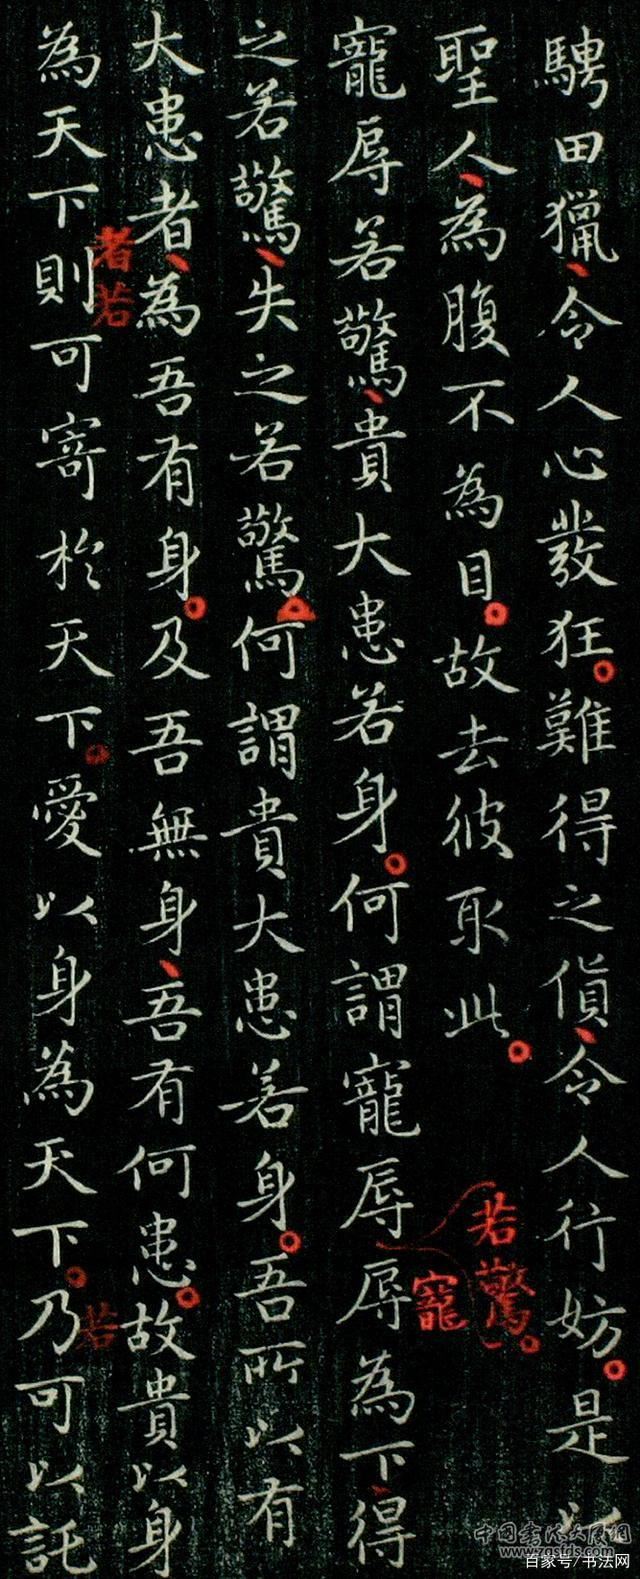 騁田獵令人心發狂難得之貨令人行妨是以
聖人為腹不為目故去彼取此
若驚
寵
寵辱若驚貴大患若身何謂寵辱辱為下得
之若驚失之若驚何謂貴大患若身吾所以有
大患者為吾有身及吾無身吾有何患故貴以身
者若
若
為天下則可寄於天下愛以身為天下乃可以託
中国书法大展网
www.zgsfds.com
百家号/书法网